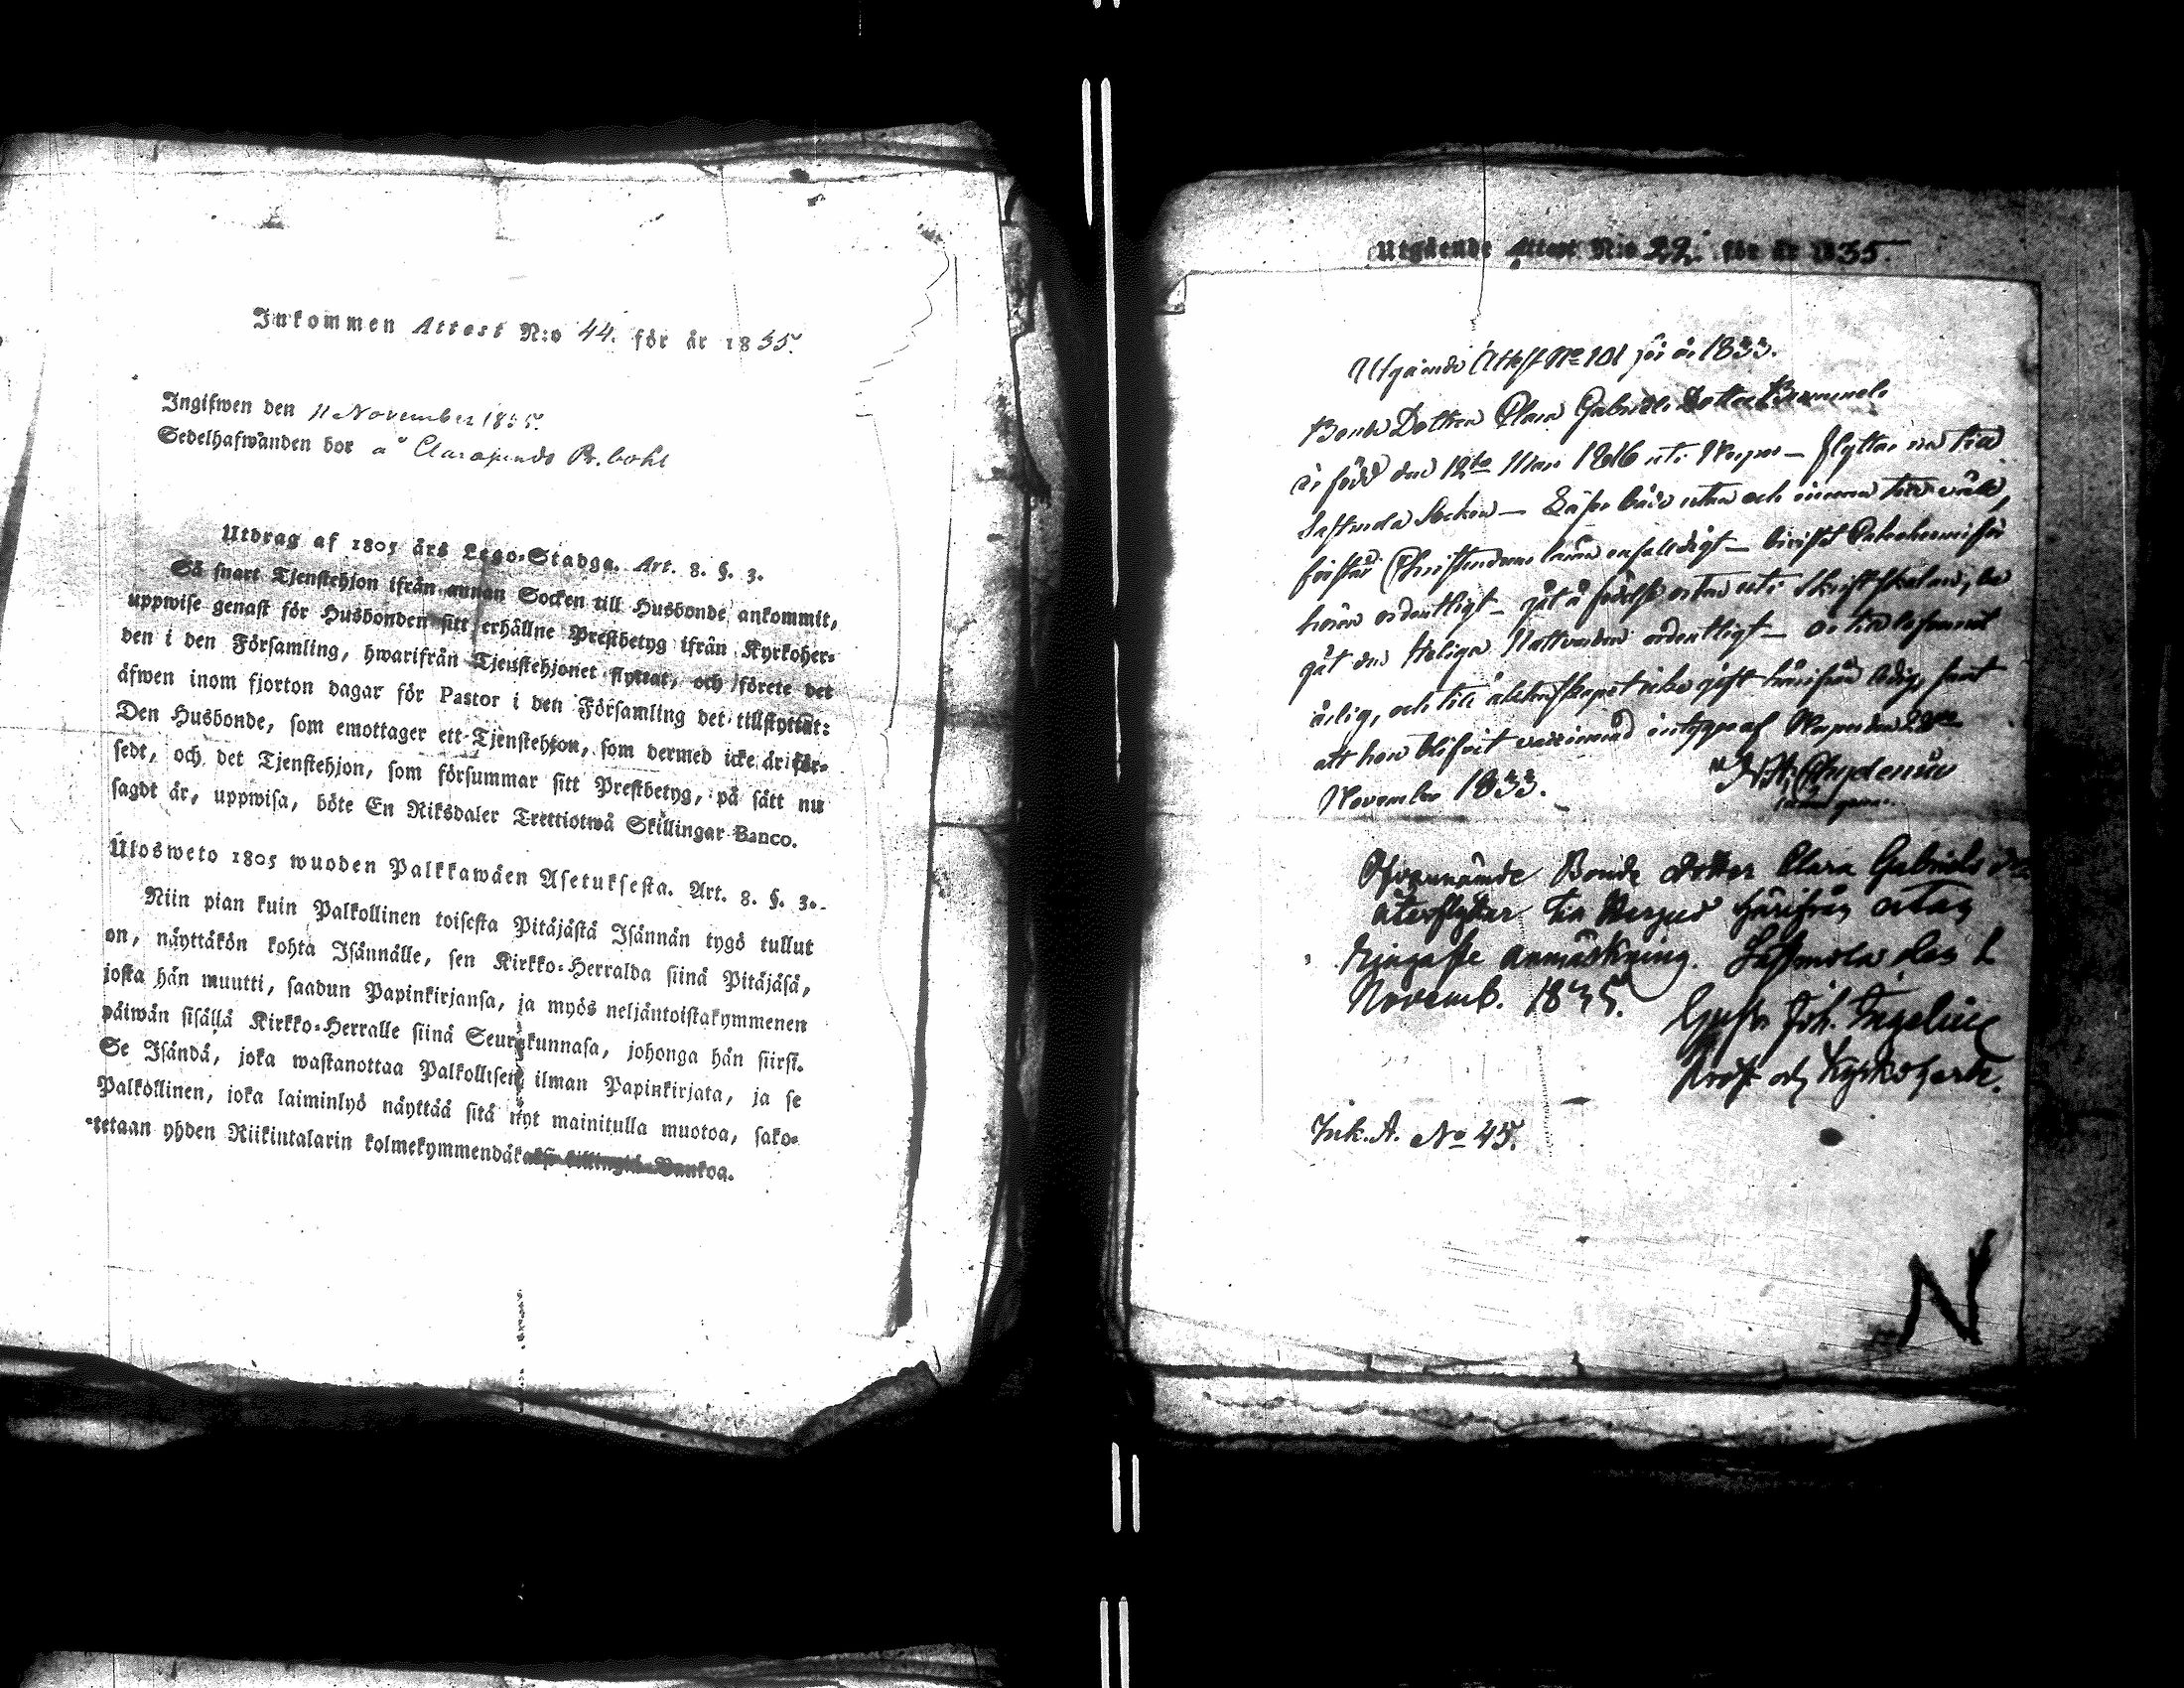 Inkommen Attest N:o 44. för år 1835.
Ingifwen den 11 November 1835.
Sedelhafwanden bor å Clarasunds R. bohl
Utdrag af 1805 års Lego-Stadga. Art. 8. §. 3.
Så snart Tjenstehjon ifrån annan Socken till Husbonde ankommit,
uppwise genast för Husbonden sitt erhållne Prestbetyg ifrån Kyrkoher-
den i den Församling, hwarifrån Tjenstehjonet flyttat, och förete det
äfwen inom fjorton dagar för Pastor i den Församling det tillflyttat:
Den Husbonde, som emottager ett Tjenstehjon, som dermed icke är för-
sedt, och det Tjenstehjon, som försummar sitt Prestbetyg, på sätt nu
sagdt är, uppwisa, böte En Riksdaler Trettiotwå Skillingar Banco.
Ulosweto 1805 wuoden Palkkawäen Asetuksesta. Art. 8. §. 3.
Niin pian kuin Palkollinen toisesta Pitäjästä Isännän tygö tullut
on, näyttäkön kohta Isännälle, sen Kirkko-Herralda siinä Pitäjäsä,
josta hän muutti, saadun Papinkirjansa, ja myös neljäntoistakymmenen
päiwän sisällä Kirkko-Herralle siinä Seurakunnasa, johonga hän siirsi.
Se Isändä, joka wastanottaa Palkollisen ilman Papinkirjata, ja se
Palkollinen, joka laiminlyö näyttää sitä nyt mainitulla muotoa, sako-
tetaan yhden Riikintalarin kolmekymmendäkaksi killingiä Bankoa.
Utgående Attest N:o 22. för år 1835.
Utgående Attest No 101 för år 1833.
Bonde Dottren Clara Gabriels Dotter
är född den 12te 1816 uti – flyttar nu till
Socken – Läser både utan och innan till wäll,
förstår Christendoms läran enfaldigt – biwistat
hören ordentligt – gåt å födelse orten uti Skriftskolan, be
gåt den Heliga Nattvarden ordentligt – är
ärlig, och till äktenskapet icke gift härifrån ledig, samt
att hon blifvit vaccinerad intygas af den
November 1833. Chydenius
Ofvannämde Bonde dotter Clara Gabriels dr
återflyttar till härifrån utan
ringaste anmärkning. den 1
Novemb. 1835. Gust. Joh. Ingelius
Prost och Kyrkoherde.
Ink. A. No 45.
N